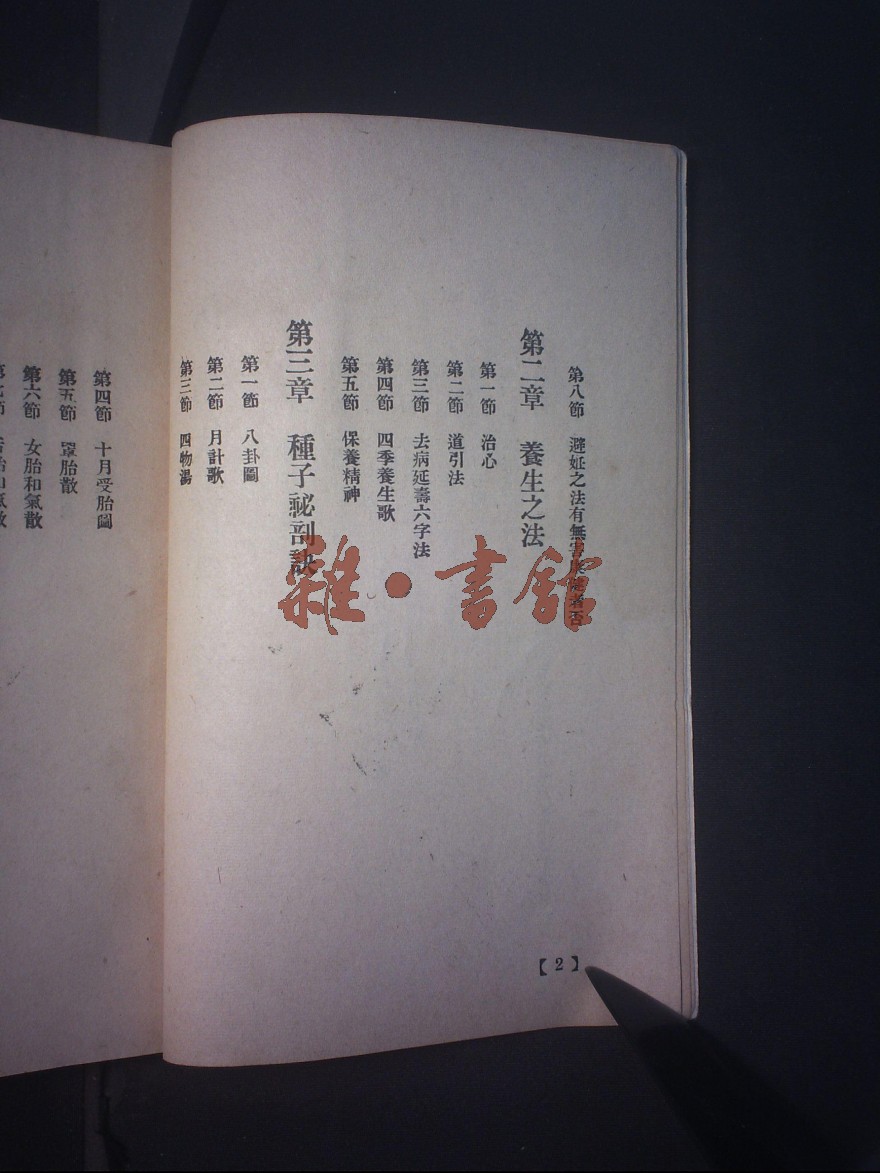 第八節　避姙之法有無害于健者否
第二章　養生之法
第一節　治心
第二節　道引法
第三節　去病延壽六字法
第四節　四季養生歌
第五節　保養精神
第三章　種子祕剖訣
第一節　八卦圖
第二節　月計歌
第三節　四物湯
【2】
第四節　十月受胎圖
第五節　罩胎散
第六節　女胎和氣散
雜·書館